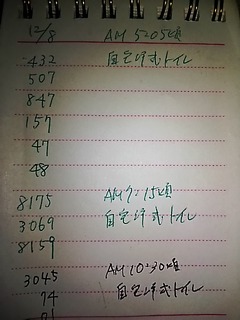 12/8 AM 5:05頃
432 自宅洋式トイレ
507
847
157
47
48
8175 AM 7:15頃
3069 自宅洋式トイレ
8159
3045 AM 10:30頃
74 自宅洋式トイレ